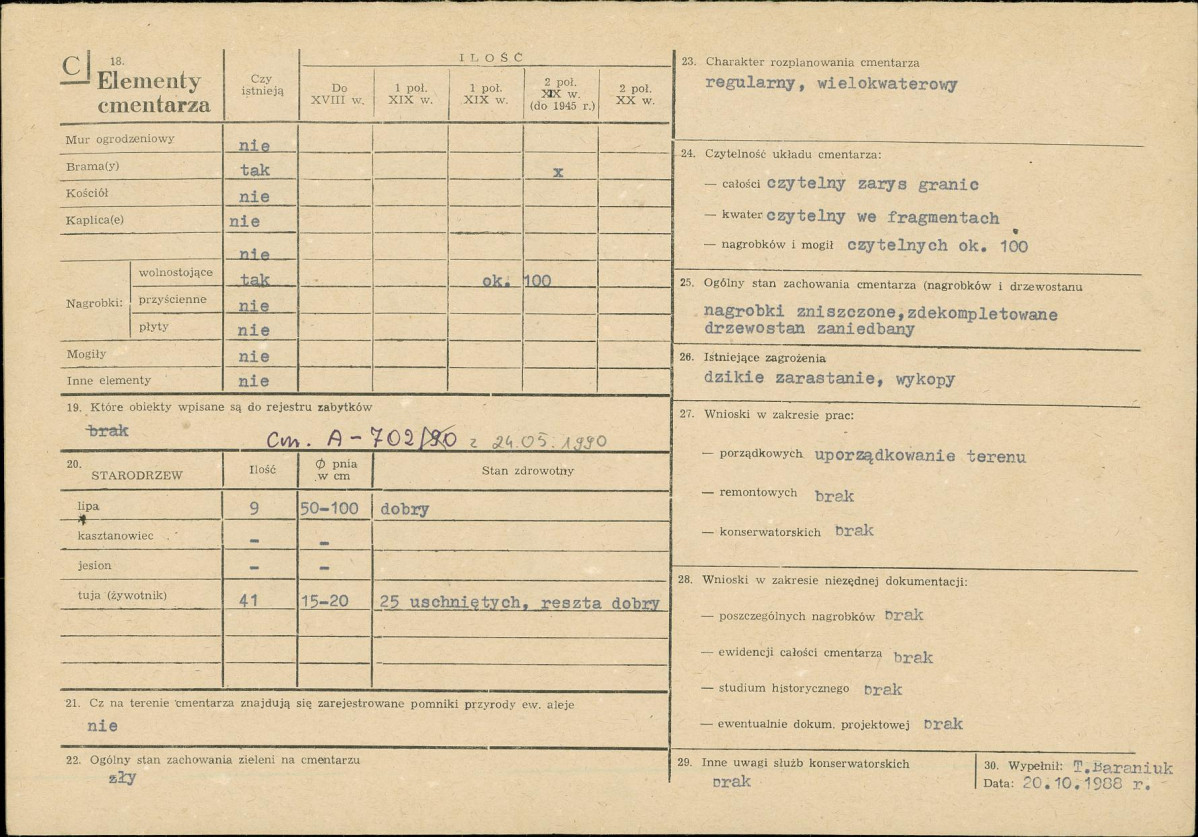 C 18.
Elementy
cmentarza
Czy
istnieją
ILOŚĆ
Do
XVIII w.
1 poł.
XIX w.
1 poł.
XIX w.
2 poł.
XIX w.
(do 1945 r.)
2 poł.
XX w.
Mur ogrodzeniowy nie
Brama(y) tak x
Kościół nie
Kaplica(e) nie
nie
Nagrobki:
wolnostojące tak ok. 100
przyścienne nie
płyty nie
Mogiły nie
Inne elementy nie
19. Które obiekty wpisane są do rejestru zabytków
brak
Cm. A-702/90 z 24.05.1990
20.
STARODRZEW
Ilość
Ø pnia
w cm
Stan zdrowotny
lipa 9 50-100 dobry
kasztanowiec - -
jesion - -
tuja (żywotnik) 41 15-20 25 uschniętych, reszta dobry
21. Cz na terenie cmentarza znajdują się zarejestrowane pomniki przyrody ew. aleje
nie
22. Ogólny stan zachowania zieleni na cmentarzu
zły
23. Charakter rozplanowania cmentarza
regularny, wielokwaterowy
24. Czytelność układu cmentarza:
— całości czytelny zarys granic
— kwater czytelny we fragmentach
— nagrobków i mogił czytelnych ok. 100
25. Ogólny stan zachowania cmentarza (nagrobków i drzewostanu
nagrobki zniszczone,zdekompletowane
drzewostan zaniedbany
26. Istniejące zagrożenia
dzikie zarastanie, wykopy
27. Wnioski w zakresie prac:
— porządkowych uporządkowanie terenu
— remontowych brak
— konserwatorskich brak
28. Wnioski w zakresie niezędnej dokumentacji:
— poszczególnych nagrobków brak
— ewidencji całości cmentarza brak
— studium historycznego brak
— ewentualnie dokum. projektowej brak
29. Inne uwagi służb konserwatorskich
brak
30. Wypełnił: T.Baraniuk
Data: 20.10.1988 r.